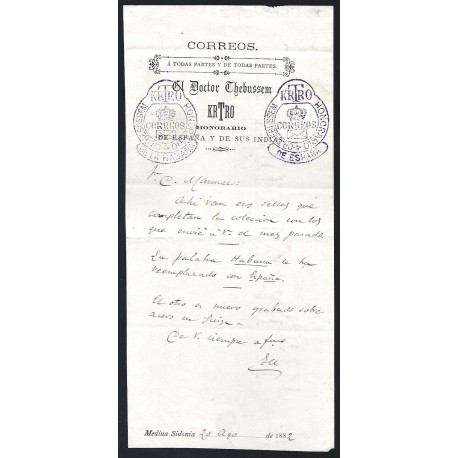 CORREOS.
Á TODAS PARTES Y DE TODAS PARTES.
El Doctor Thebussem
KRTRO
HONORARIO
DE ESPAÑA Y DE SUS INDIAS
KRTRO
CORREOS
KRTRO
CORREOS
DE ESPAÑA
C. Manuel:
Ahi van esos sellos que
completan la coleccion con los
que envié á V. el mes pasado.
La palabra Habana se ha
reemplazado con España.
El otro es nuevo grabado sobre
acero en Suiza.
De V. siempre afmo
Medina Sidonia 20 Ago de 1882